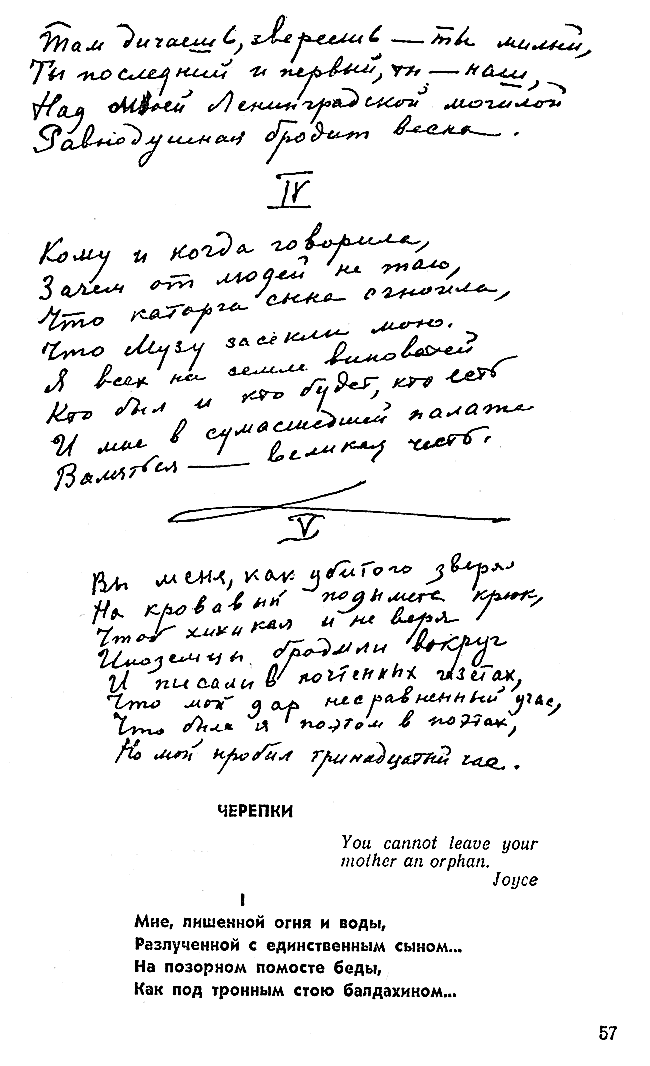 Там дичаешь, звереешь — ты милый,
Ты последний и первый, ты — наш,
Над моей Ленинградской могилой
Равнодушная бродит весна.
IV
Кому и когда говорила,
Зачем от людей не таю,
Что каторга сына сгноила,
Что Музу засекли мою.
Я всех на земле виноватей
Кто был и кто будет, кто есть
И мне в сумасшедшей палате
Валяться — великая честь.
V
Вы меня, как убитого зверя
На кровавый подымете крюк,
Чтоб хихикая и не веря
Иноземцы бродили вокруг
И писали в почтенных газетах,
Что мой дар несравненный угас,
Что была я поэтом в поэтах,
Но мой пробил тринадцатый час.
ЧЕРЕПКИ
You cannot leave your
mother an orphan.
Joyce
I
Мне, лишенной огня и воды,
Разлученной с единственным сыном...
На позорном помосте беды,
Как под тронным стою балдахином...
57